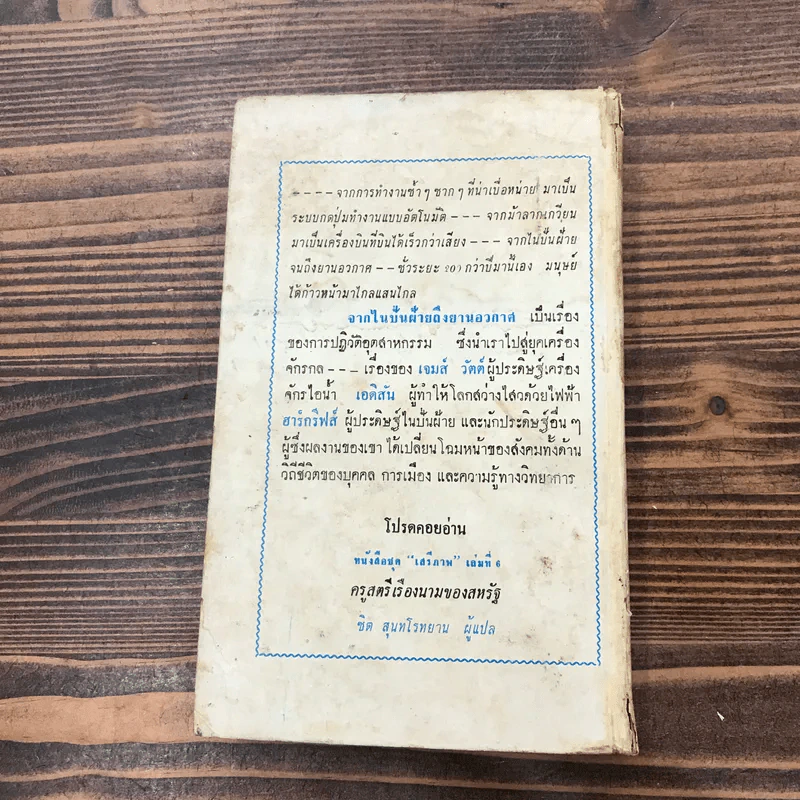 - - - - จากการทำงานซ้ำ ๆ ซาก ๆ ที่น่าเบื่อหน่าย มาเป็น
ระบบกดปุ่มทำงานแบบอัตโนมัติ - - - จากม้าลากเกวียน
มาเป็นเครื่องบินที่บินได้เร็วกว่าเสียง - - - จากไนปั่นฝ้าย
จนถึงยานอวกาศ - - ชั่วระยะ ๒๐๐ กว่าปีมานี้เอง มนุษย์
ได้ก้าวหน้ามาไกลแสนไกล
จากไนปั่นฝ้ายถึงยานอวกาศ เป็นเรื่อง
ของการปฏิวัติอุตสาหกรรม ซึ่งนำเราไปสู่ยุคเครื่อง
จักรกล - - - เรื่องของ เจมส์ วัตต์ ผู้ประดิษฐ์เครื่อง
จักรไอน้ำ เอดิสัน ผู้ทำให้โลกสว่างไสวด้วยไฟฟ้า
ฮาร์กรีฟส์ ผู้ประดิษฐ์ไนปั่นฝ้าย และนักประดิษฐ์อื่น ๆ
ผู้ซึ่งผลงานของเขา ได้เปลี่ยนโฉมหน้าของสังคมทั้งด้าน
วิถีชีวิตของบุคคล การเมือง และความรู้ทางวิทยาการ
โปรดคอยอ่าน
หนังสือชุด "เสรีภาพ" เล่มที่ 6
ครูสตรีเรืองนามของสหรัฐ
ชิต สุนทโรทยาน ผู้แปล